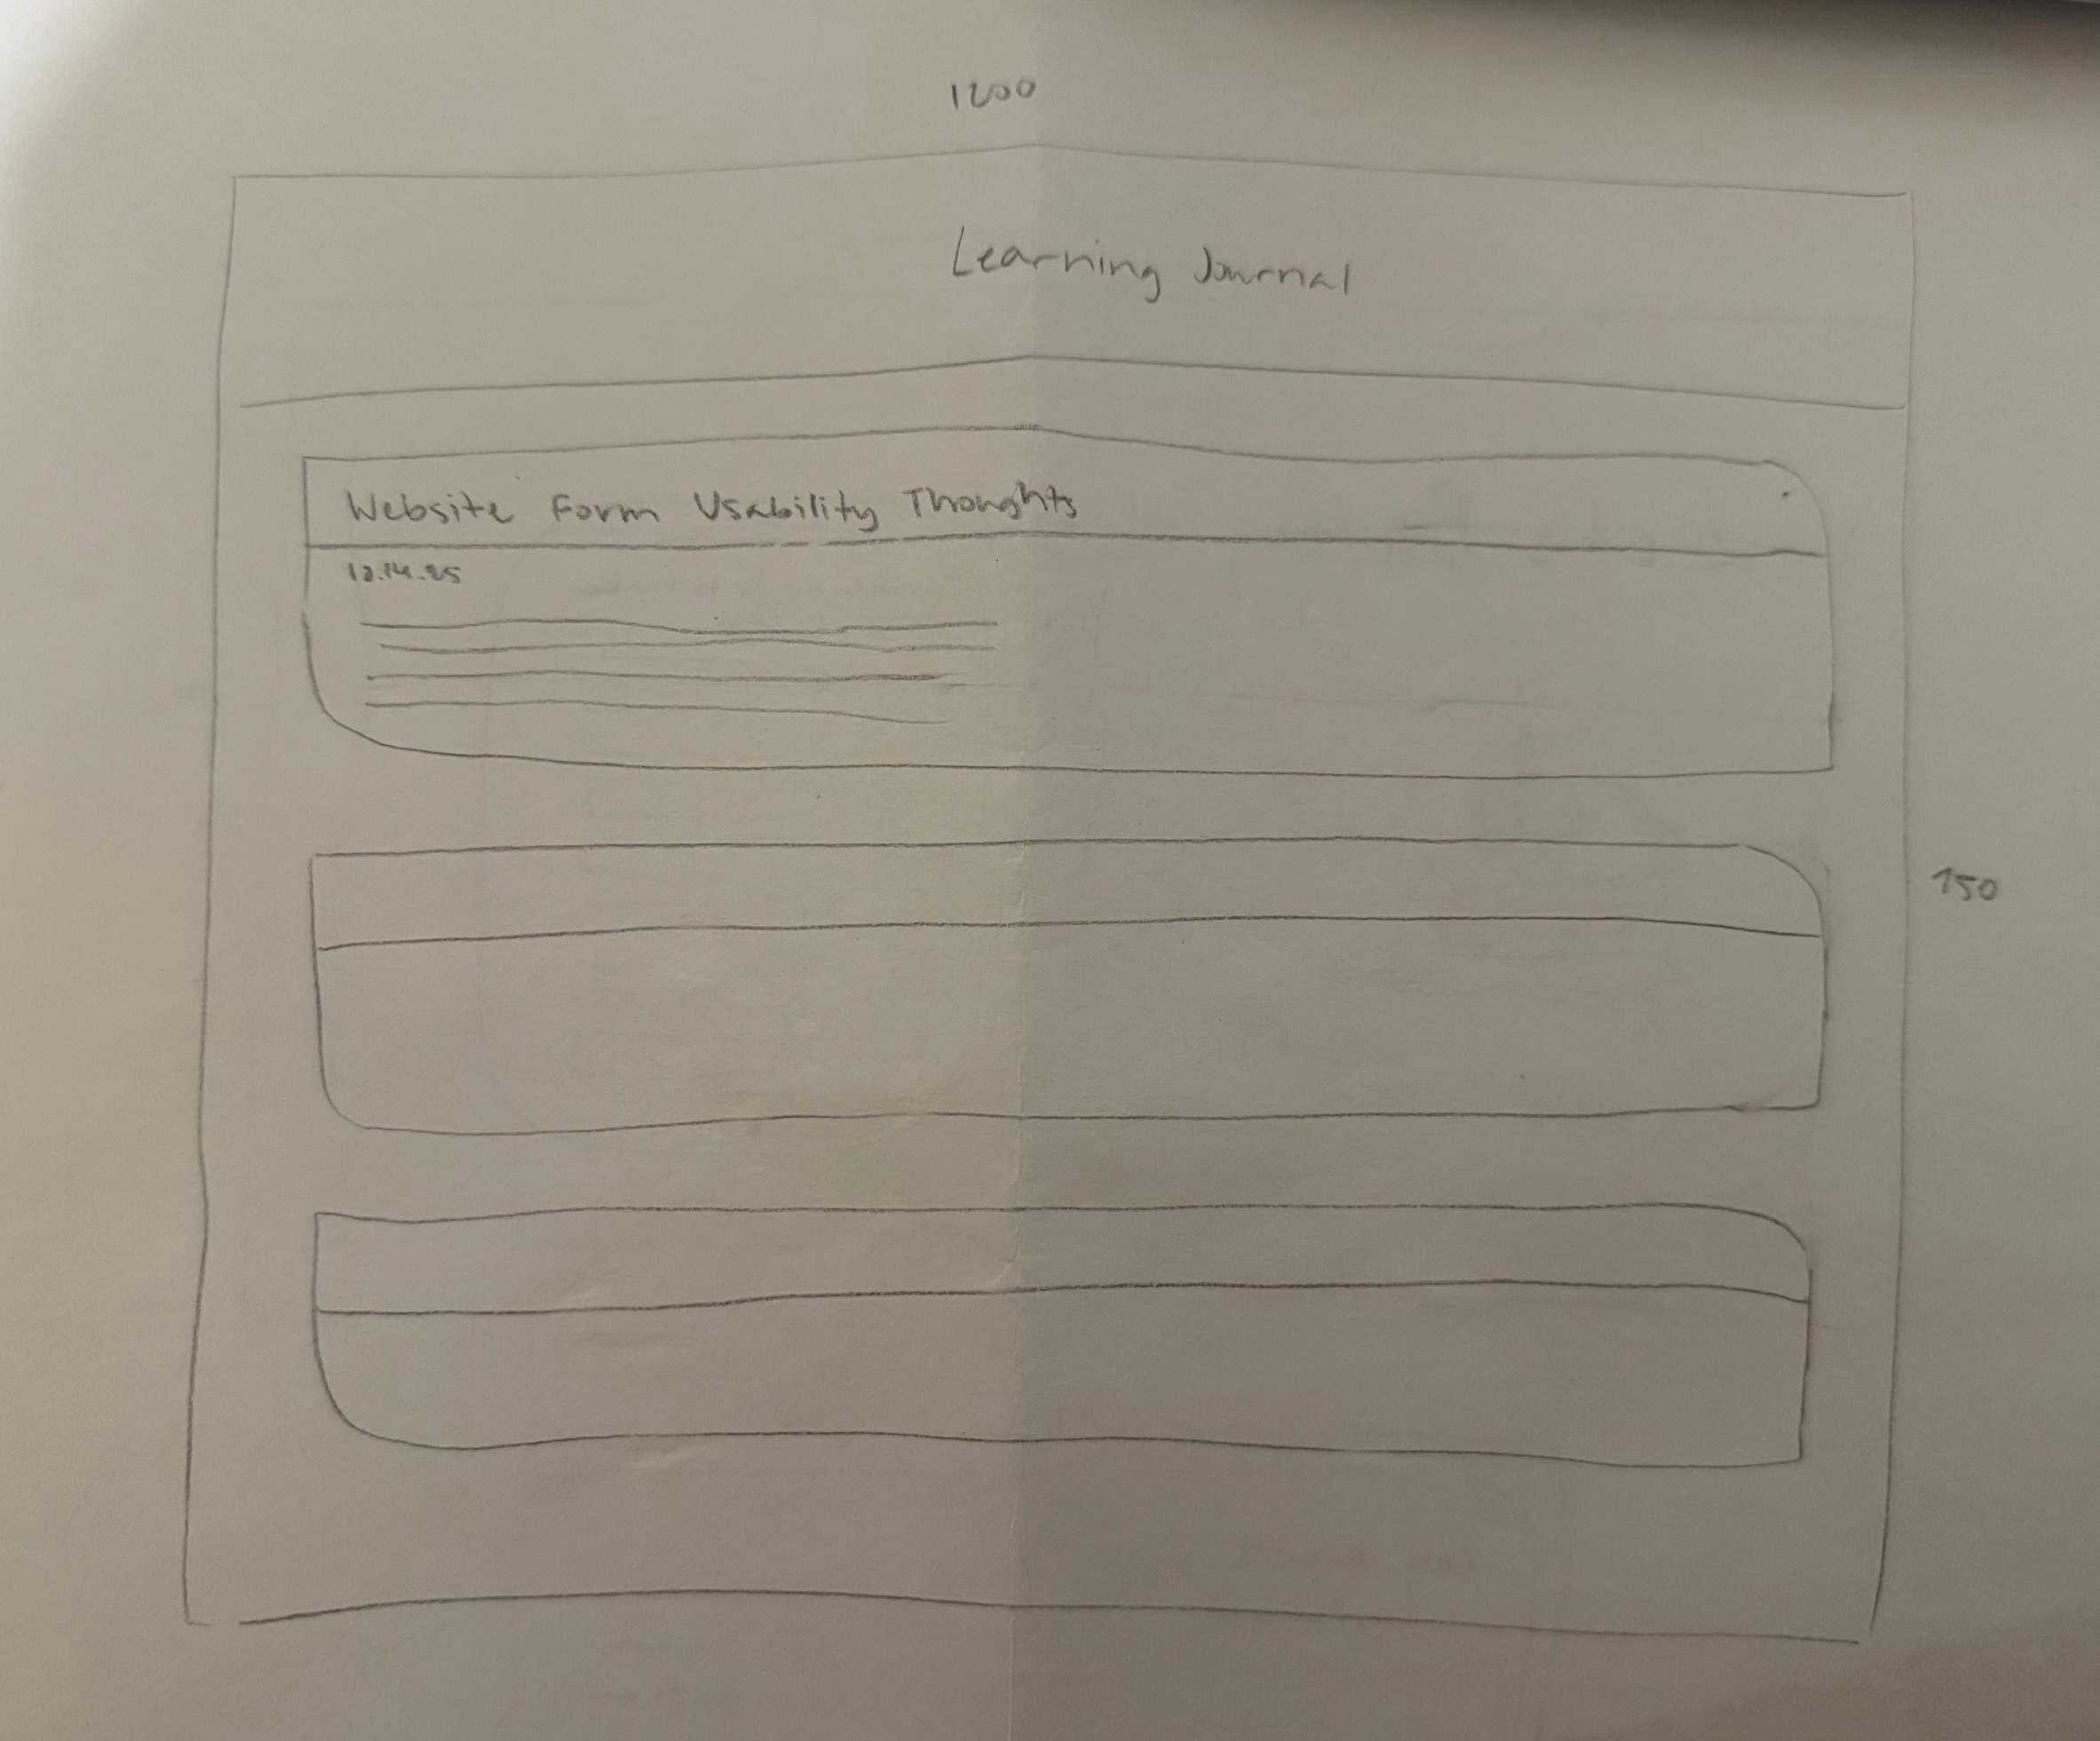 1200
Learning Journal
Website Form Usability Thoughts
12.14.25
750